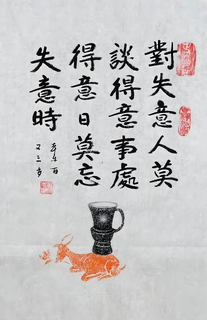 對失意人莫
談得意事處
得意日莫忘
失意時